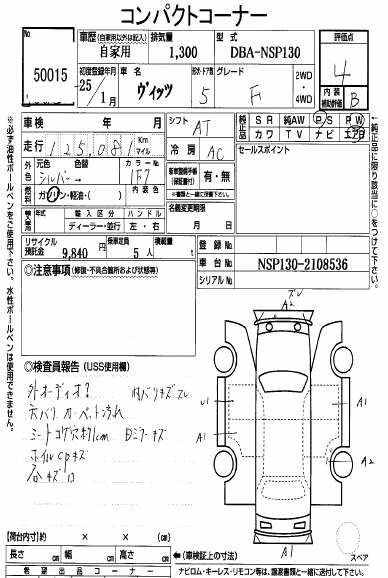 コンパクトコーナー
No
50015
車歴(自家用以外は記入)
自家用
排気量
1,300
型式
DBA-NSP130
評価点
4
内装
補助評価
B
初度登録年月
-25
1月
車名
ヴィッツ
形状・ドア数
5
グレード
F
2WD
4WD
車検 年 月
走行 125,081 Km マイル
シフト AT
冷房 AC
純正品 SR 純AW PS PW
カワ TV ナビ エアB
セールスポイント
外色 元色 シルバー 色替
カラーNo 1F7
内装色
燃料 ガソリン・軽油・( )
新車整備手帳(保証書付) 有・無
名義変更期限
月 日
輸入車 年式 輸入区分 ハンドル
ディーラー・並行 左・右
リサイクル預託金 9,840 円
乗車定員 5 人
積載量 t
登録No
車台No NSP130-2108536
シリアルNo
◎注意事項(修復・不具合箇所および状態等)
◎検査員報告(USS使用欄)
外オーディオ?
内バリキズスレ
天バリ カーペット汚れ
シートコゲ穴約1cm Dミラーキズ
ホイルcpキズ
石キズ
スレ
A2
U1
A1
A1
A2
A1
スペア
【荷台内寸】約 × × (cm)
長さ cm 幅 cm 高さ cm
(車検証上の寸法)
希望出品コーナー
ナビロム・キーレス・リモコン等は、譲渡書類と一緒に送付して下さい。
※必ず油性ボールペンをご使用下さい。水性ボールペンは使用できません。